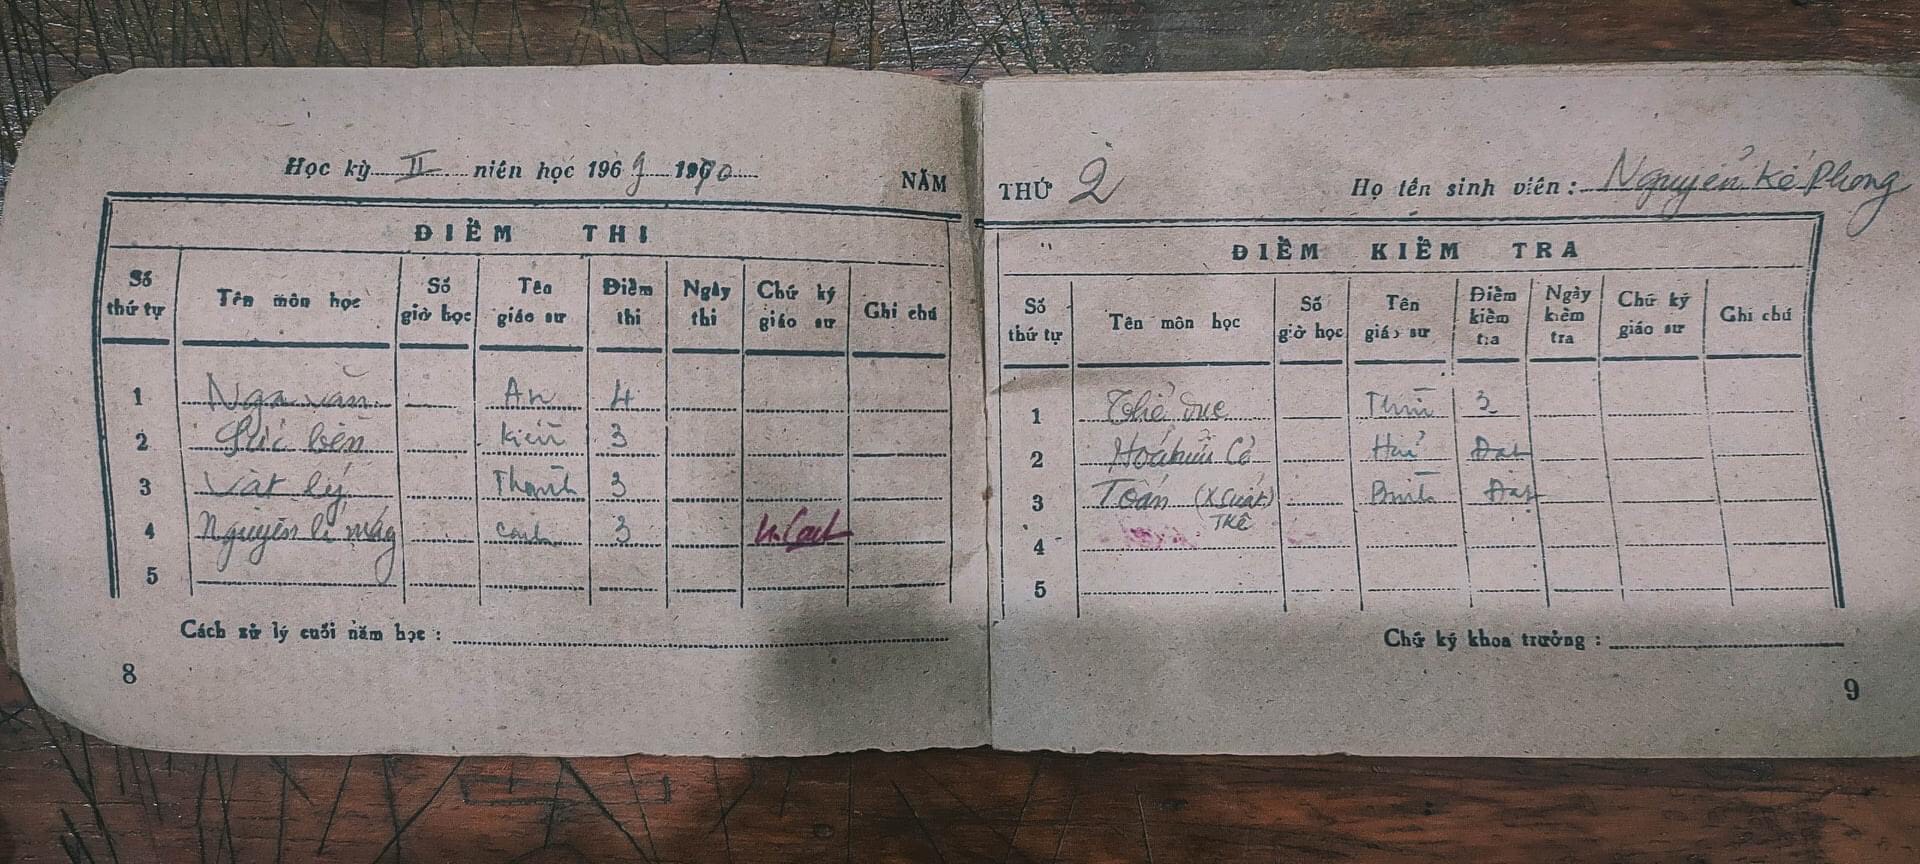 Học kỳ II niên học 1969 1970
NĂM
ĐIỂM THI
Số thứ tự
Tên môn học
Số giờ học
Tên giáo sư
Điểm thi
Ngày thi
Chữ ký giáo sư
Ghi chú
1 Nga văn An 4
2 Sức bền Kiên 3
3 Vật lý Thanh 3
4 Nguyên lí máy Canh 3
5
Cách xử lý cuối năm học :
8
THỨ 2 Họ tên sinh viên : Nguyễn Kế Phong
ĐIỂM KIỂM TRA
Số thứ tự
Tên môn học
Số giờ học
Tên giáo sư
Điểm kiểm tra
Ngày kiểm tra
Chữ ký giáo sư
Ghi chú
1 Thể dục 3
2 Hoá hữu Cơ Đạt
3 Toán (X suất) Bình Đạt
TKê
4
5
Chữ ký khoa trưởng :
9